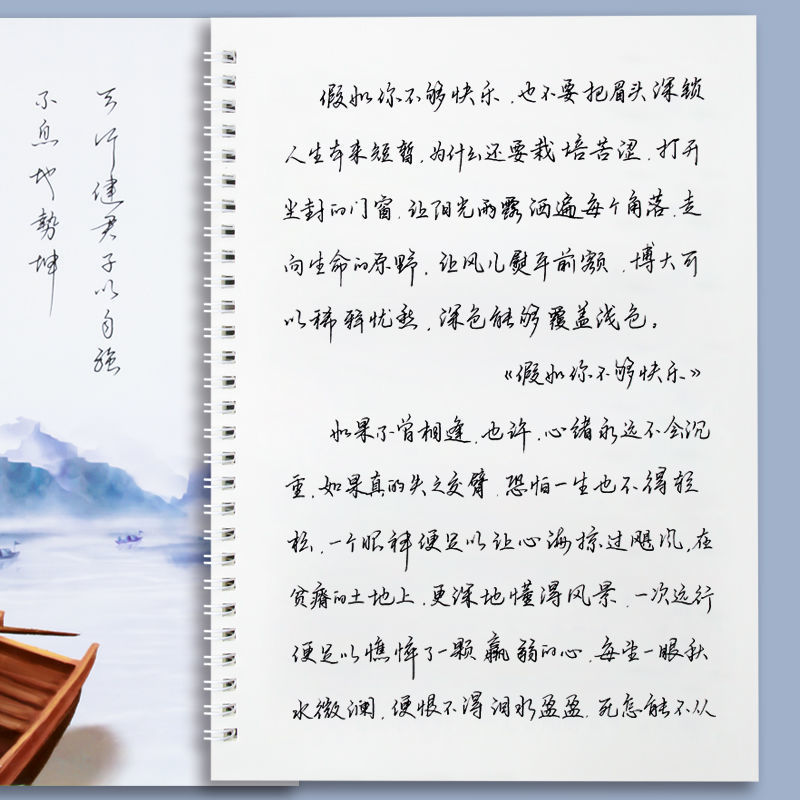 天行健君子以自强
不息地勢坤
假如你不够快乐，也不要把眉头深锁
人生本来短暂，为什么还要栽培苦涩，打开
尘封的门窗，让阳光雨露洒遍每个角落，走
向生命的原野，让风儿熨平前额，博大可
以稀释忧愁，深色能够覆盖浅色。
《假如你不够快乐》
如果不曾相逢，也许，心绪永远不会沉
重，如果真的失之交臂，恐怕一生也不得轻
松，一个眼神便足以让心海掠过飓风，在
贫瘠的土地上，更深地懂得风景，一次远行
便足以憔悴了一颗羸弱的心，每望一眼秋
水微澜，便恨不得泪水盈盈，死怎能不从